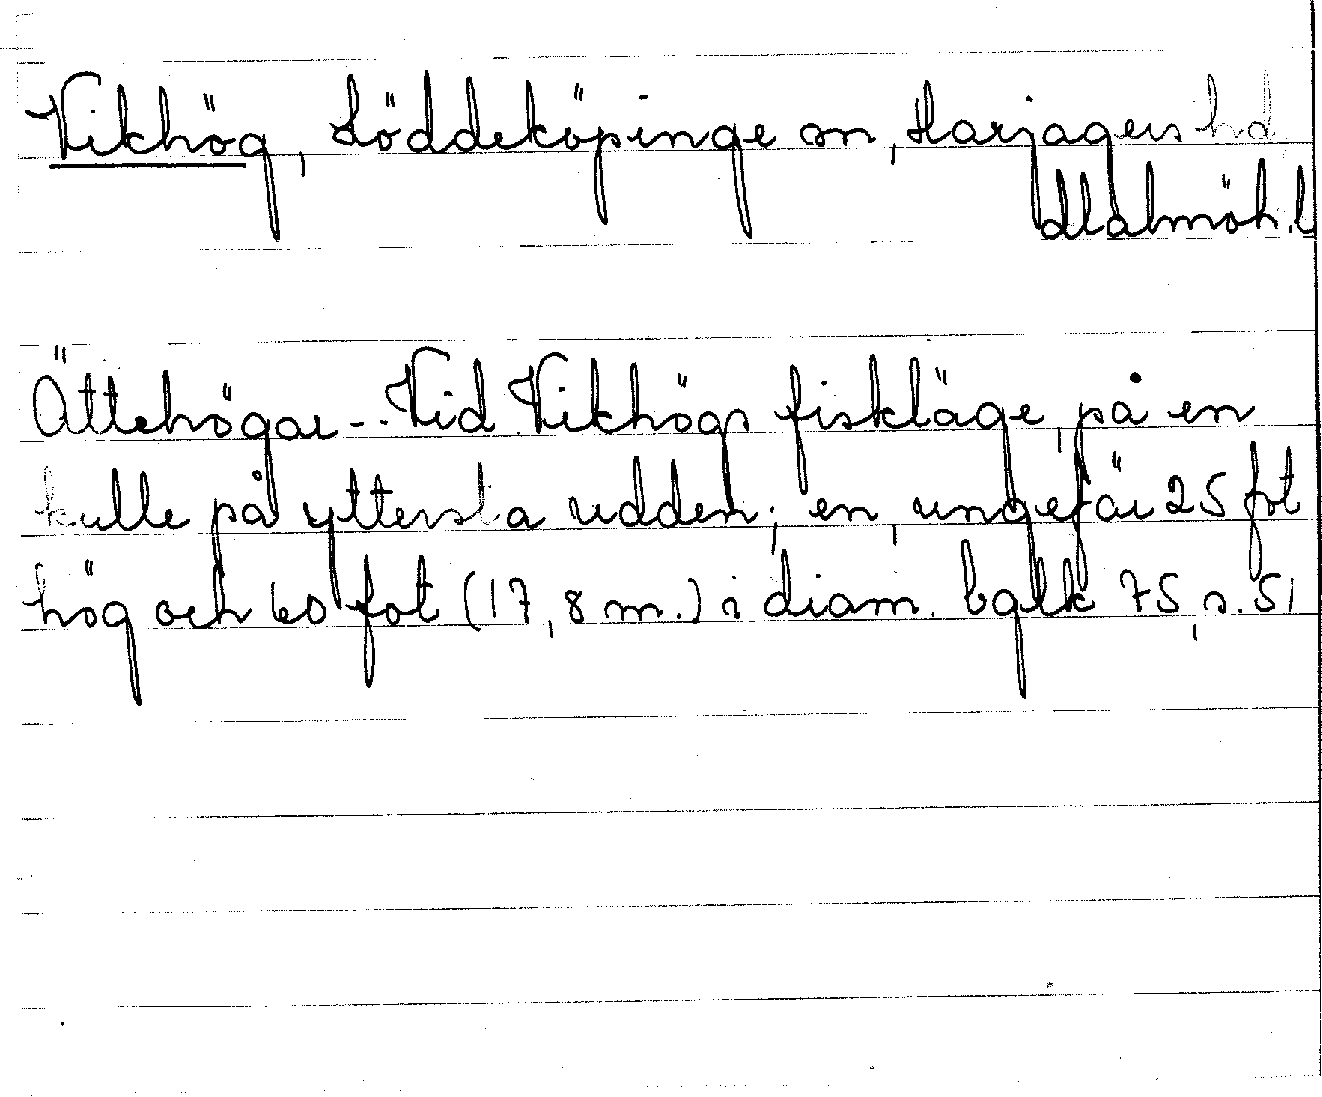 Vikhög, Löddeköpinge sn, Harjagers hd
Malmöh. l
Ättehögar -. Vid Vikhögs fiskläge, på en
kulle på yttersta udden; en, ungefär 25 fot
hög och 60 fot (17,8 m.) i diam. bglk 75, s. 51